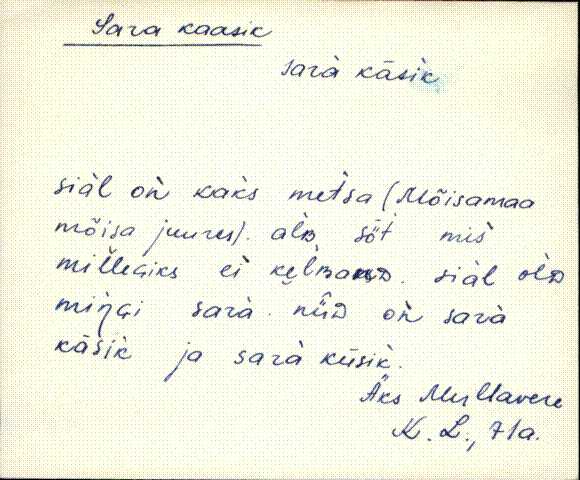 Sara kaasik
sarà kāsìk
siàl oǹ kak̀s met̀sa (Mõisamaa
mõisa juures). alʙ̀ söt̀ mis̀
milleɢiks ei kel̀ʙanuᴅ. siàl olᴅ
miŋɢi sarà. nǖᴅ oǹ sarà
kāsìk ja sarà kūsìk.
Äks Mullavere
K. L., 71a.